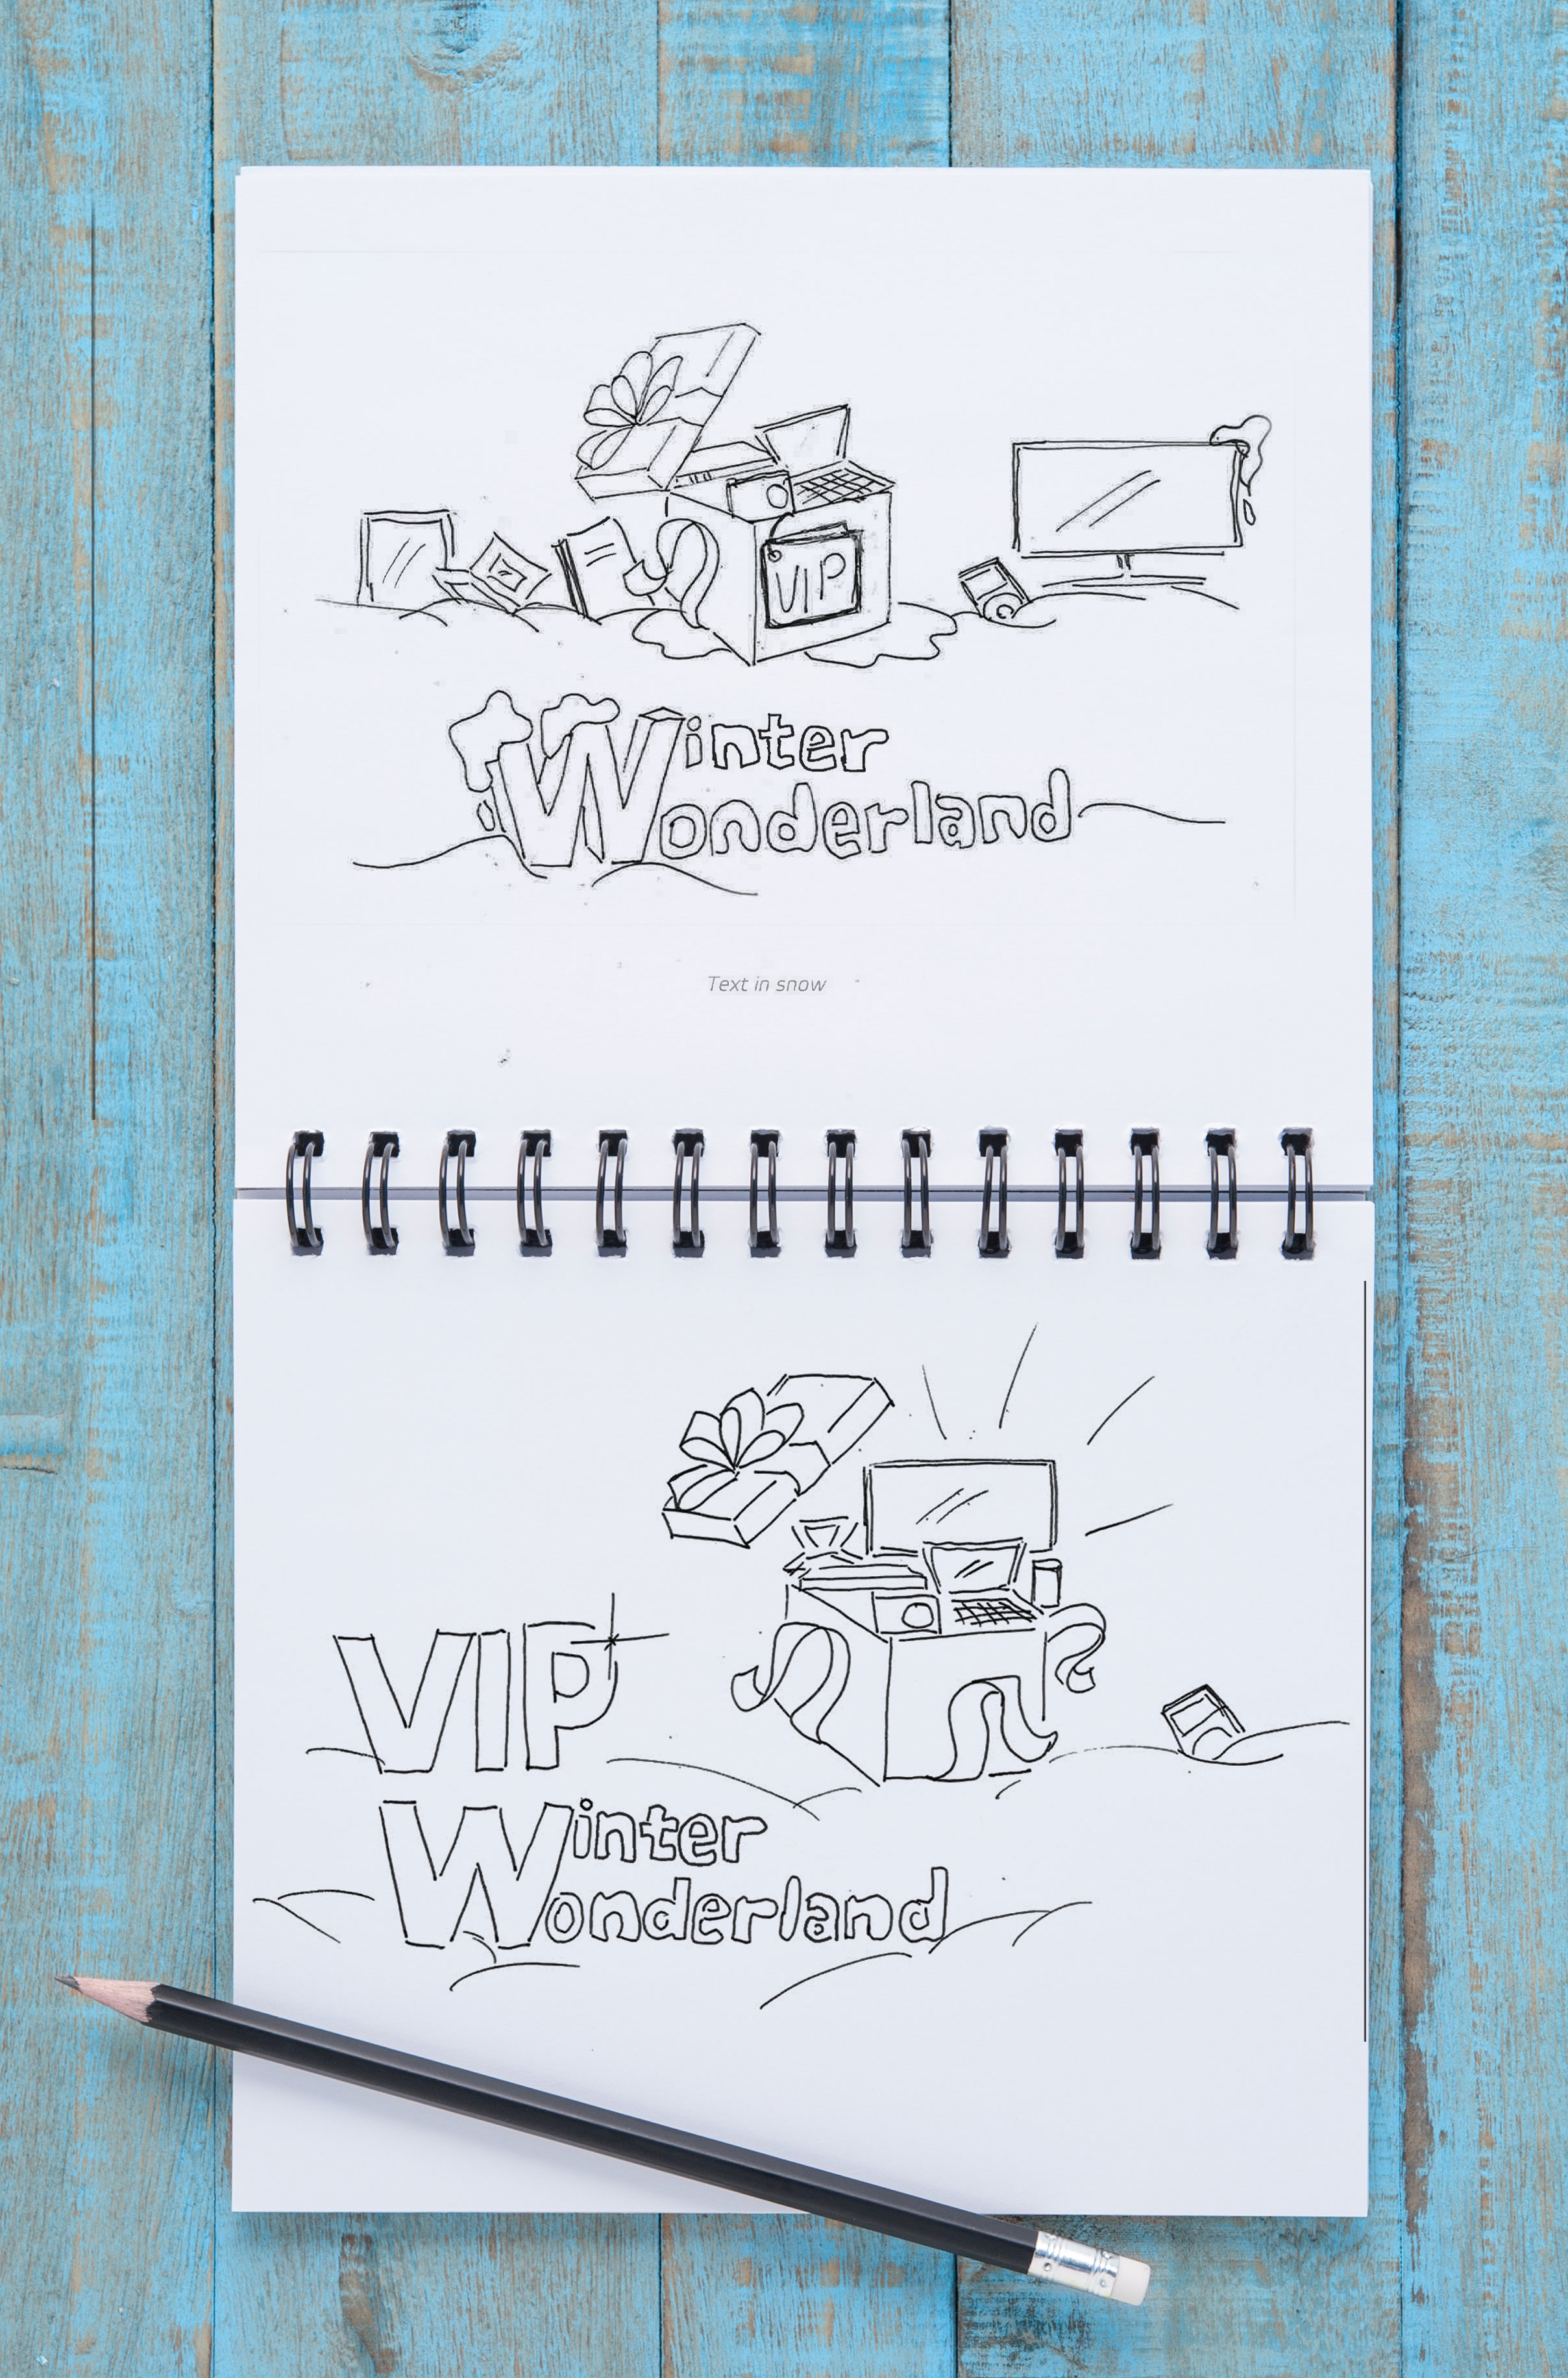 VIP
Winter
Wonderland
Text in snow
VIP
Winter
Wonderland